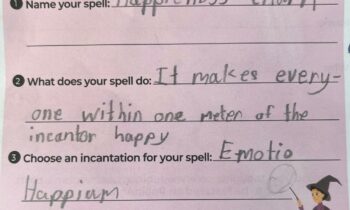 1 Name your spell: Happiness Charm
2 What does your spell do: It makes every-
one within one meter of the
incantor happy
3 Choose an incantation for your spell: Emotio
Happium